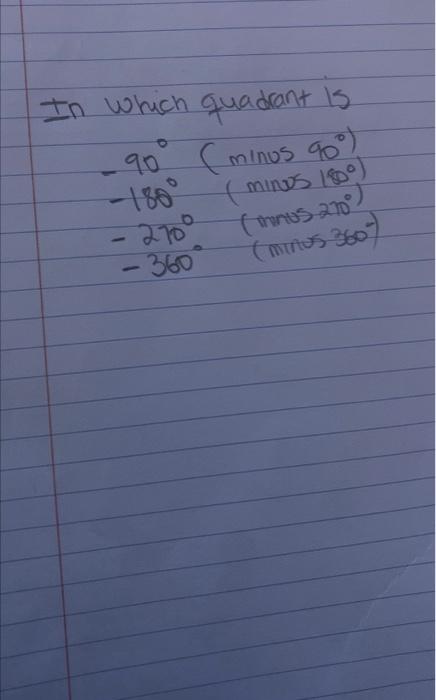 In which quadrant is
-90° (minus 90°)
-180° (minus 180°)
-270° (minus 270°)
-360° (minus 360°)